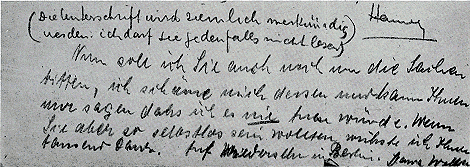 (Die Unterschrift wird ziemlich merkwürdig
werden: ich darf sie jedenfalls nicht lesen)
Nun soll ich Sie auch noch um die Sachen
bitten, ich schäme mich dessen und kann Ihnen
nur sagen dass ich es nie tun würde. Wenn
Sie aber so selbstlos sein wollten, wüsste ich Ihnen
tausend Dank. Auf Wiedersehn in Berlin.